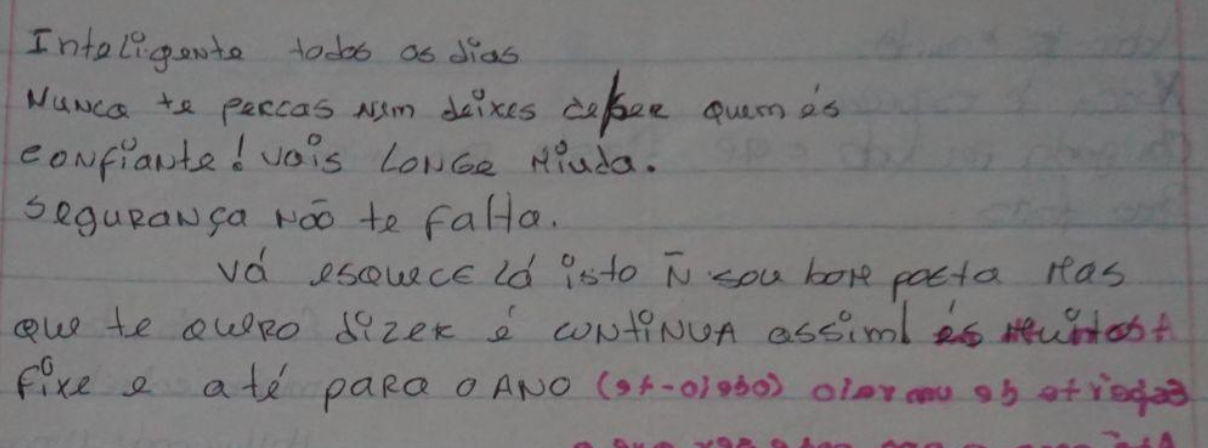 Inteligente todos os dias
Nunca te percas nem deixes de ser quem és
confiante! vais Longe Miuda.
segurança não te falta.
vá esquece lá isto Ñ sou bom poeta mas
que te quero dizer é continua assim! és
fixe e até para o ANO